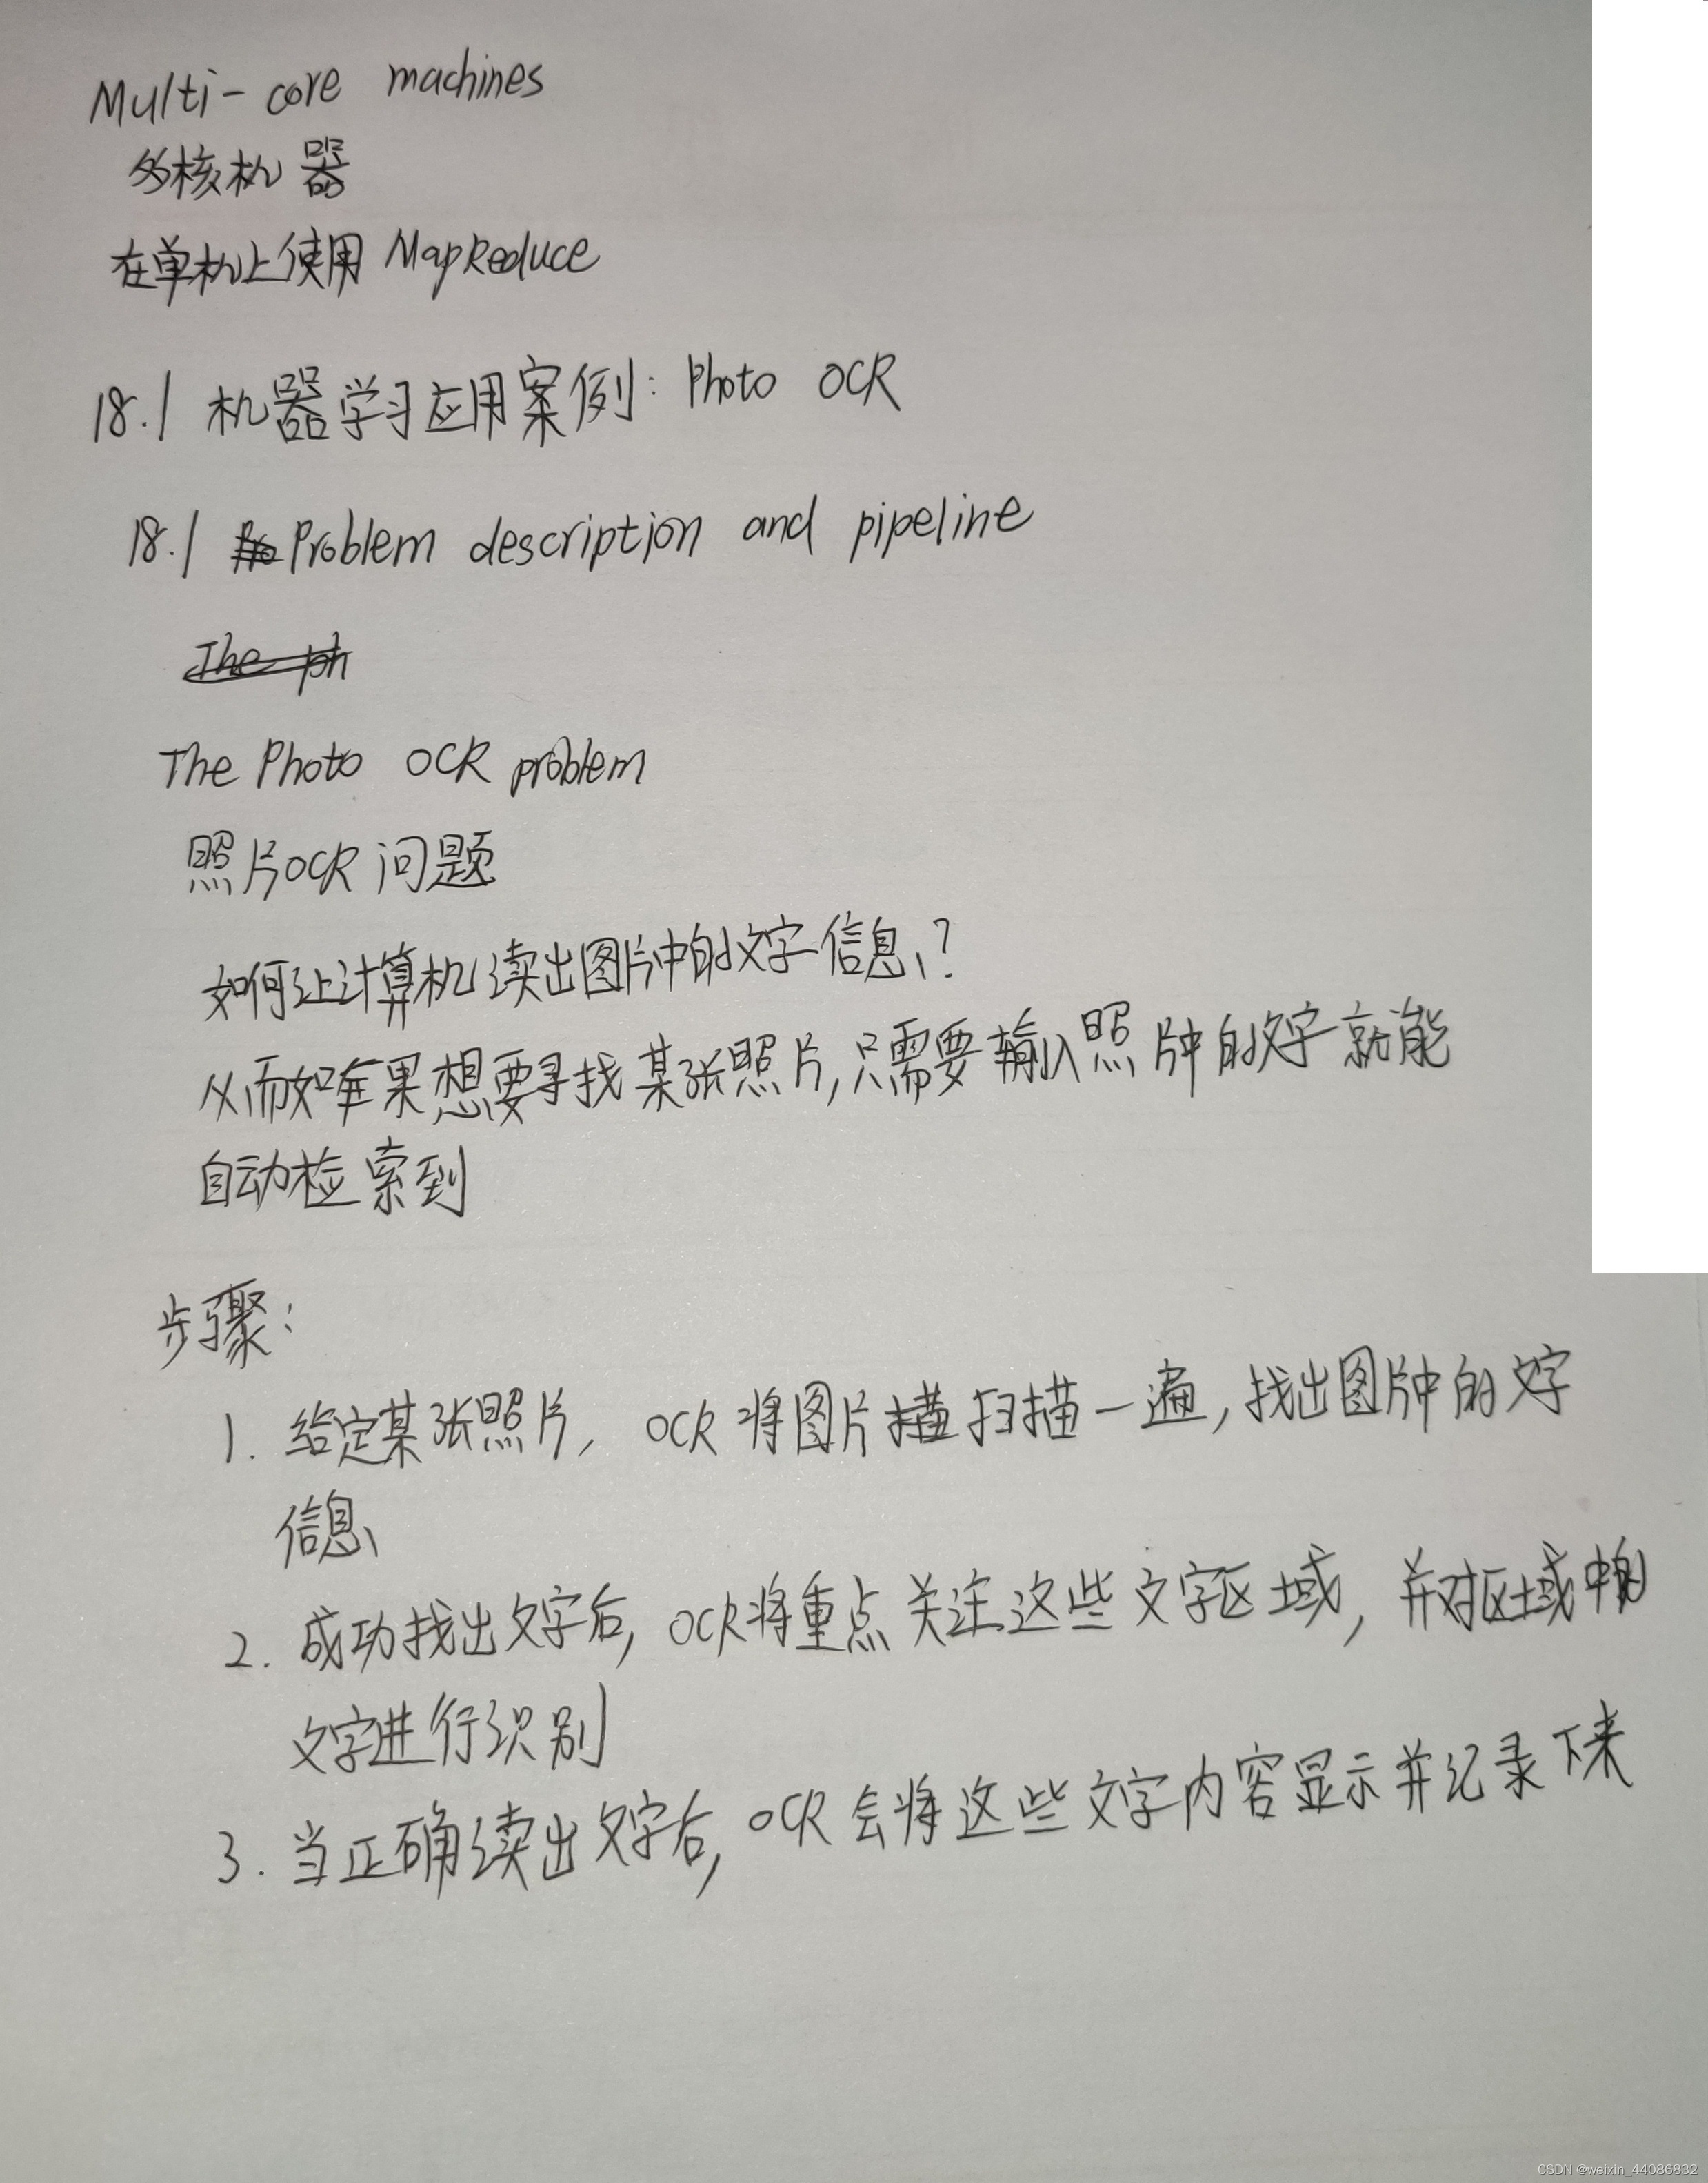 Multi-core machines
多核机器
在单机上使用 MapReduce
18.1 机器学习应用案例: Photo OCR
18.1 Problem description and pipeline
The ph
The Photo OCR problem
照片OCR 问题
如何让计算机读出图片中的文字信息?
从而如果想要寻找某张照片,只需要输入照片中的文字就能
自动检索到
步骤:
1. 给定某张照片, OCR 将图片扫描一遍,找出图片中的文字
信息
2. 成功找出文字后, OCR将重点关注这些文字区域, 并对区域中的
文字进行识别
3. 当正确读出文字后, OCR 会将这些文字内容显示并记录下来
CSDN @weixin_44086832